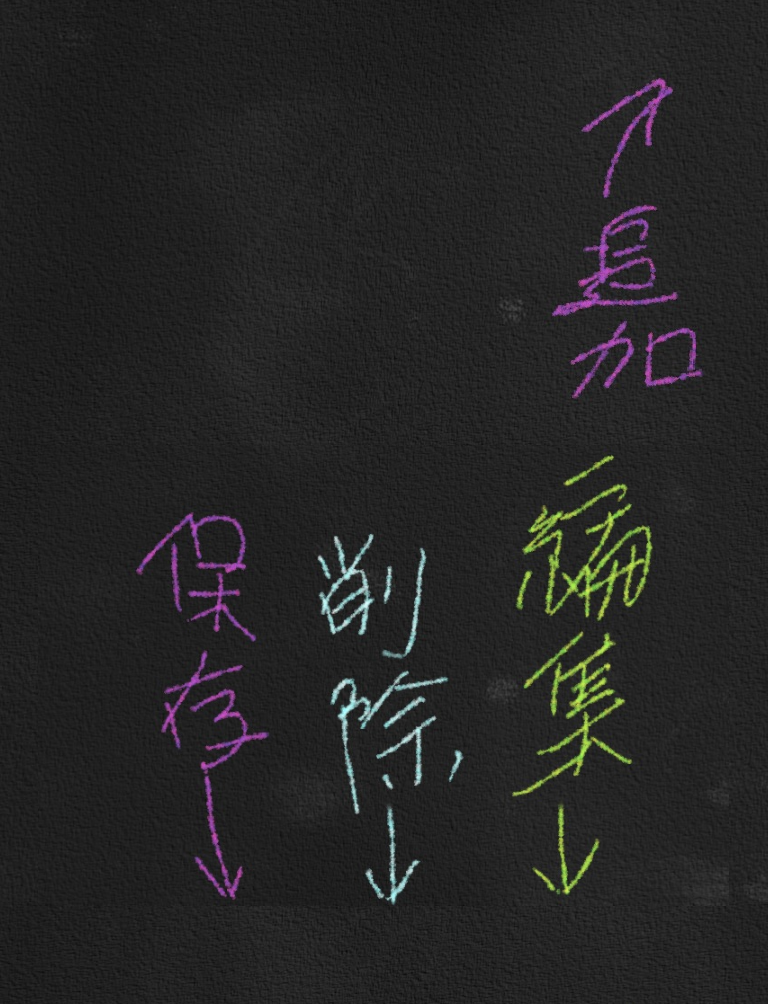 追加
編集
削除
保存